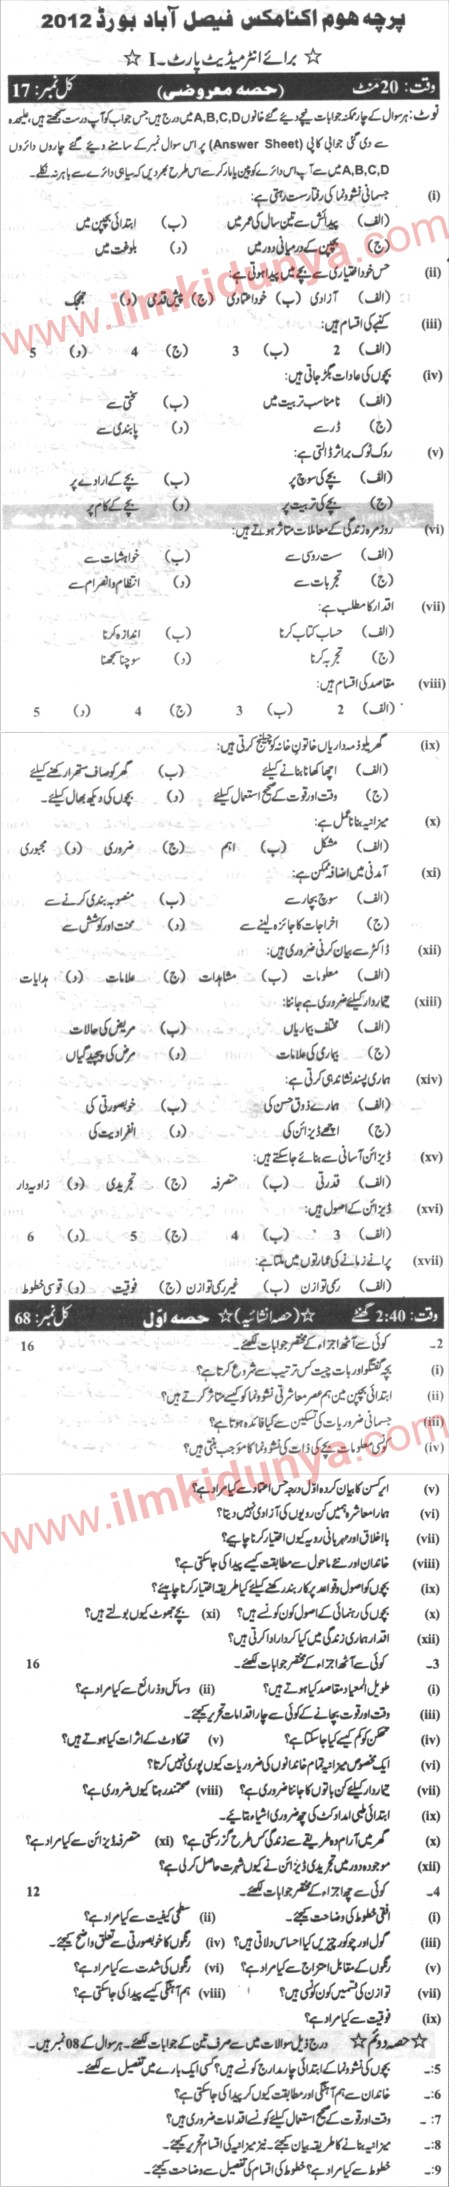 پرچہ ہوم اکنامکس فیصل آباد بورڈ 2012
☆ برائے انٹرمیڈیٹ پارٹ-I ☆
وقت: 20 منٹ (حصہ معروضی) کل نمبر: 17
نوٹ: ہر سوال کے چار ممکنہ جوابات نیچے دیئے گئے خانوں A,B,C,D میں درج ہیں، جس جواب کو آپ درست سمجھتے ہیں، علیحدہ
سے دی گئی جوابی کاپی (Answer Sheet) پر اس سوال نمبر کے سامنے دیئے گئے چاروں دائروں
A,B,C,D میں سے آپ اس دائرے کو پین یا مارکر سے اس طرح بھر دیں کہ سیاہی دائرے سے باہر نہ نکلے۔
(i) جسمانی نشوونما کی رفتار سست رہتی ہے:
(الف) پیدائش سے تین سال کی عمر میں (ب) ابتدائی بچپن میں
(ج) بچپن کے درمیانی دور میں (د) بلوغت میں
(ii) حس خود اختیاری سے بچے میں پیدا ہوتی ہے:
(الف) آزادی (ب) خود اعتمادی (ج) پیش قدمی (د) جھجک
(iii) کنبے کی اقسام ہیں:
(الف) 2 (ب) 3 (ج) 4 (د) 5
(iv) بچوں کی عادات بگڑ جاتی ہیں:
(الف) نامناسب تربیت میں (ب) سختی سے
(ج) ڈر سے (د) پابندی سے
(v) روک ٹوک برا اثر ڈالتی ہے:
(الف) بچے کی سوچ پر (ب) بچے کے ارادے پر
(ج) بچے کی تربیت پر (د) بچے کے کام پر
(vi) روزمرہ زندگی کے معاملات متاثر ہوتے ہیں:
(الف) سست روی سے (ب) خواہشات سے
(ج) تجربات سے (د) انتظام و انصرام سے
(vii) اقدار کا مطلب ہے:
(الف) حساب کتاب کرنا (ب) اندازہ کرنا
(ج) تجربہ کرنا (د) سوچنا سمجھنا
(viii) مقاصد کی اقسام ہیں:
(الف) 2 (ب) 3 (ج) 4 (د) 5
(ix) گھریلو ذمہ داریاں خاتون خانہ کو چیلنج کرتی ہیں:
(الف) اچھا کھانا بنانے کیلئے (ب) گھر کو صاف ستھرا رکھنے کیلئے
(ج) وقت اور قوت کے صحیح استعمال کیلئے (د) بچوں کی دیکھ بھال کیلئے۔
(x) میزانیہ بنانا عمل ہے:
(الف) مشکل (ب) اہم (ج) ضروری (د) مجبوری
(xi) آمدنی میں اضافہ ممکن ہے:
(الف) سوچ بچار سے (ب) منصوبہ بندی کرنے سے
(ج) اخراجات کا جائزہ لینے سے (د) محنت اور کوشش سے
(xii) ڈاکٹر سے بیان کرنی ضروری ہیں:
(الف) معلومات (ب) مشاہدات (ج) علامات (د) ہدایات
(xiii) تیماردار کیلئے ضروری ہے جاننا:
(الف) مختلف بیماریاں (ب) مریض کی حالات
(ج) بیماری کی علامات (د) مرض کی پیچیدگیاں
(xiv) ہماری پسند نشاندہی کرتی ہے:
(الف) ہمارے ذوق حسن کی (ب) خوبصورتی کی
(ج) اچھے ڈیزائن کی (د) انفرادیت کی
(xv) ڈیزائن آسانی سے بنائے جا سکتے ہیں:
(الف) قدرتی (ب) متصرفہ (ج) تجریدی (د) زاویہ دار
(xvi) ڈیزائن کے اصول ہیں:
(الف) 3 (ب) 4 (ج) 5 (د) 6
(xvii) پرانے زمانے کی عمارتوں میں ملتا ہے:
(الف) رسمی توازن (ب) غیر رسمی توازن (ج) فوقیت (د) قوسی خطوط
وقت: 2:40 گھنٹے ☆ (حصہ انشائیہ) ☆ حصہ اوّل کل نمبر: 68
2۔ کوئی سے آٹھ اجزاء کے مختصر جوابات لکھئے۔ 16
(i) بچہ گفتگو اور بات چیت کس ترتیب سے شروع کرتا ہے؟
(ii) ابتدائی بچپن میں ہم عصر معاشرتی نشوونما کو کیسے متاثر کرتے ہیں؟
(iii) جسمانی ضروریات کی تسکین سے کیا فائدہ ہوتا ہے؟
(iv) کونسی معلومات بچے کی ذات کی نشوونما کا موجب بنتی ہیں؟
(v) ایرکسن کا بیان کردہ اوّل درجہ حس اعتماد سے کیا مراد ہے؟
(vi) ہمارا معاشرہ ہمیں کن رویوں کی آزادی نہیں دیتا؟
(vii) با اخلاق اور مہربانی رویہ کیوں اختیار کرنا چاہیے؟
(viii) خاندان اور نئے ماحول سے مطابقت کیسے پیدا کی جا سکتی ہے؟
(ix) بچوں کو اصول و قواعد پر کاربند رکھنے کیلئے کیا طریقہ اختیار کرنا چاہئے؟
(x) بچوں کی رہنمائی کے اصول کون کونسے ہیں؟ (xi) بچے جھوٹ کیوں بولتے ہیں؟
(xii) اقدار ہماری زندگی میں کیا کردار ادا کرتی ہیں؟
3۔ کوئی سے آٹھ اجزاء کے مختصر جوابات لکھئے۔ 16
(i) طویل المعیاد مقاصد کیا ہوتے ہیں؟ (ii) وسائل و ذرائع سے کیا مراد ہے؟
(iii) وقت اور قوت بچانے کے کوئی سے چار اقدامات تحریر کیجئے۔
(iv) تھکن کو کم کیسے کیا جا سکتا ہے؟ (v) تھکاوٹ کے اثرات کیا ہوتے ہیں؟
(vi) ایک مخصوص میزانیہ تمام خاندانوں کی ضروریات کیوں پوری نہیں کرتا؟
(vii) تیماردار کیلئے کن باتوں کا جاننا ضروری ہے؟ (viii) صحتمند رہنا کیوں ضروری ہے؟
(ix) ابتدائی طبی امداد کٹ کی چھ ضروری اشیاء بتائیے۔
(x) گھر میں آرام دہ طریقے سے زندگی کس طرح گزر سکتی ہے؟ (xi) متصرفہ ڈیزائن سے کیا مراد ہے؟
(xii) موجودہ دور میں تجریدی ڈیزائن نے کیوں شہرت حاصل کر لی ہے؟
4۔ کوئی سے چھ اجزاء کے مختصر جوابات لکھئے۔ 12
(i) افقی خطوط کی وضاحت کیجئے۔ (ii) سطحی کیفیت سے کیا مراد ہے؟
(iii) گول اور چوکور چیزیں کیا احساس دلاتی ہیں؟ (iv) رنگوں کا خوبصورتی سے تعلق واضح کیجئے۔
(v) رنگوں کے مقابل امتزاج سے کیا مراد ہے؟ (vi) رنگوں کی شدت سے کیا مراد ہے؟
(vii) توازن کی قسمیں کون کونسی ہیں؟ (viii) ہم آہنگی کیسے پیدا کی جا سکتی ہے؟
(ix) فوقیت سے کیا مراد ہے؟
☆ حصہ دوئم ☆ درج ذیل سوالات میں سے صرف تین کے جوابات لکھئے۔ ہر سوال کے 08 نمبر ہیں۔
5:۔ بچوں کی نشوونما کے ابتدائی چار مدارج کونسے ہیں؟ کسی ایک بارے میں تفصیل سے لکھئے۔
6:۔ خاندان سے ہم آہنگی اور مطابقت کیوں کر پیدا کی جا سکتی ہے؟
7:۔ وقت اور قوت کے صحیح استعمال کیلئے کونسے اقدامات ضروری ہیں؟
8:۔ میزانیہ بنانے کا طریقہ بیان کیجئے۔ نیز میزانیہ کی اقسام تحریر کیجئے۔
9:۔ خطوط سے کیا مراد ہے؟ خطوط کی اقسام کی تفصیل سے وضاحت کیجئے۔
www.ilmkidunya.com
www.ilmkidunya.com